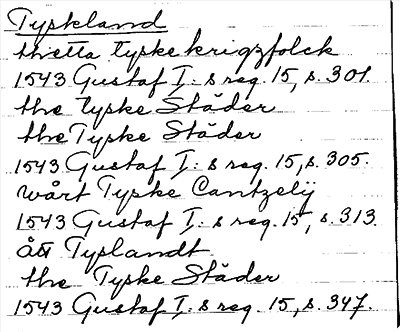 Tyskland
thetta tyske krigzfolck
1543 Gustaf I:s reg. 15, s. 301.
the tyske Städer
the Tyske Städer
1543 Gustaf I:s reg. 15, s. 305.
wårt Tyske Cantzelij
1543 Gustaf I:s reg. 15, s. 313.
ått Tysslandt
the Tyske Städer
1543 Gustaf I:s reg. 15, s. 347.